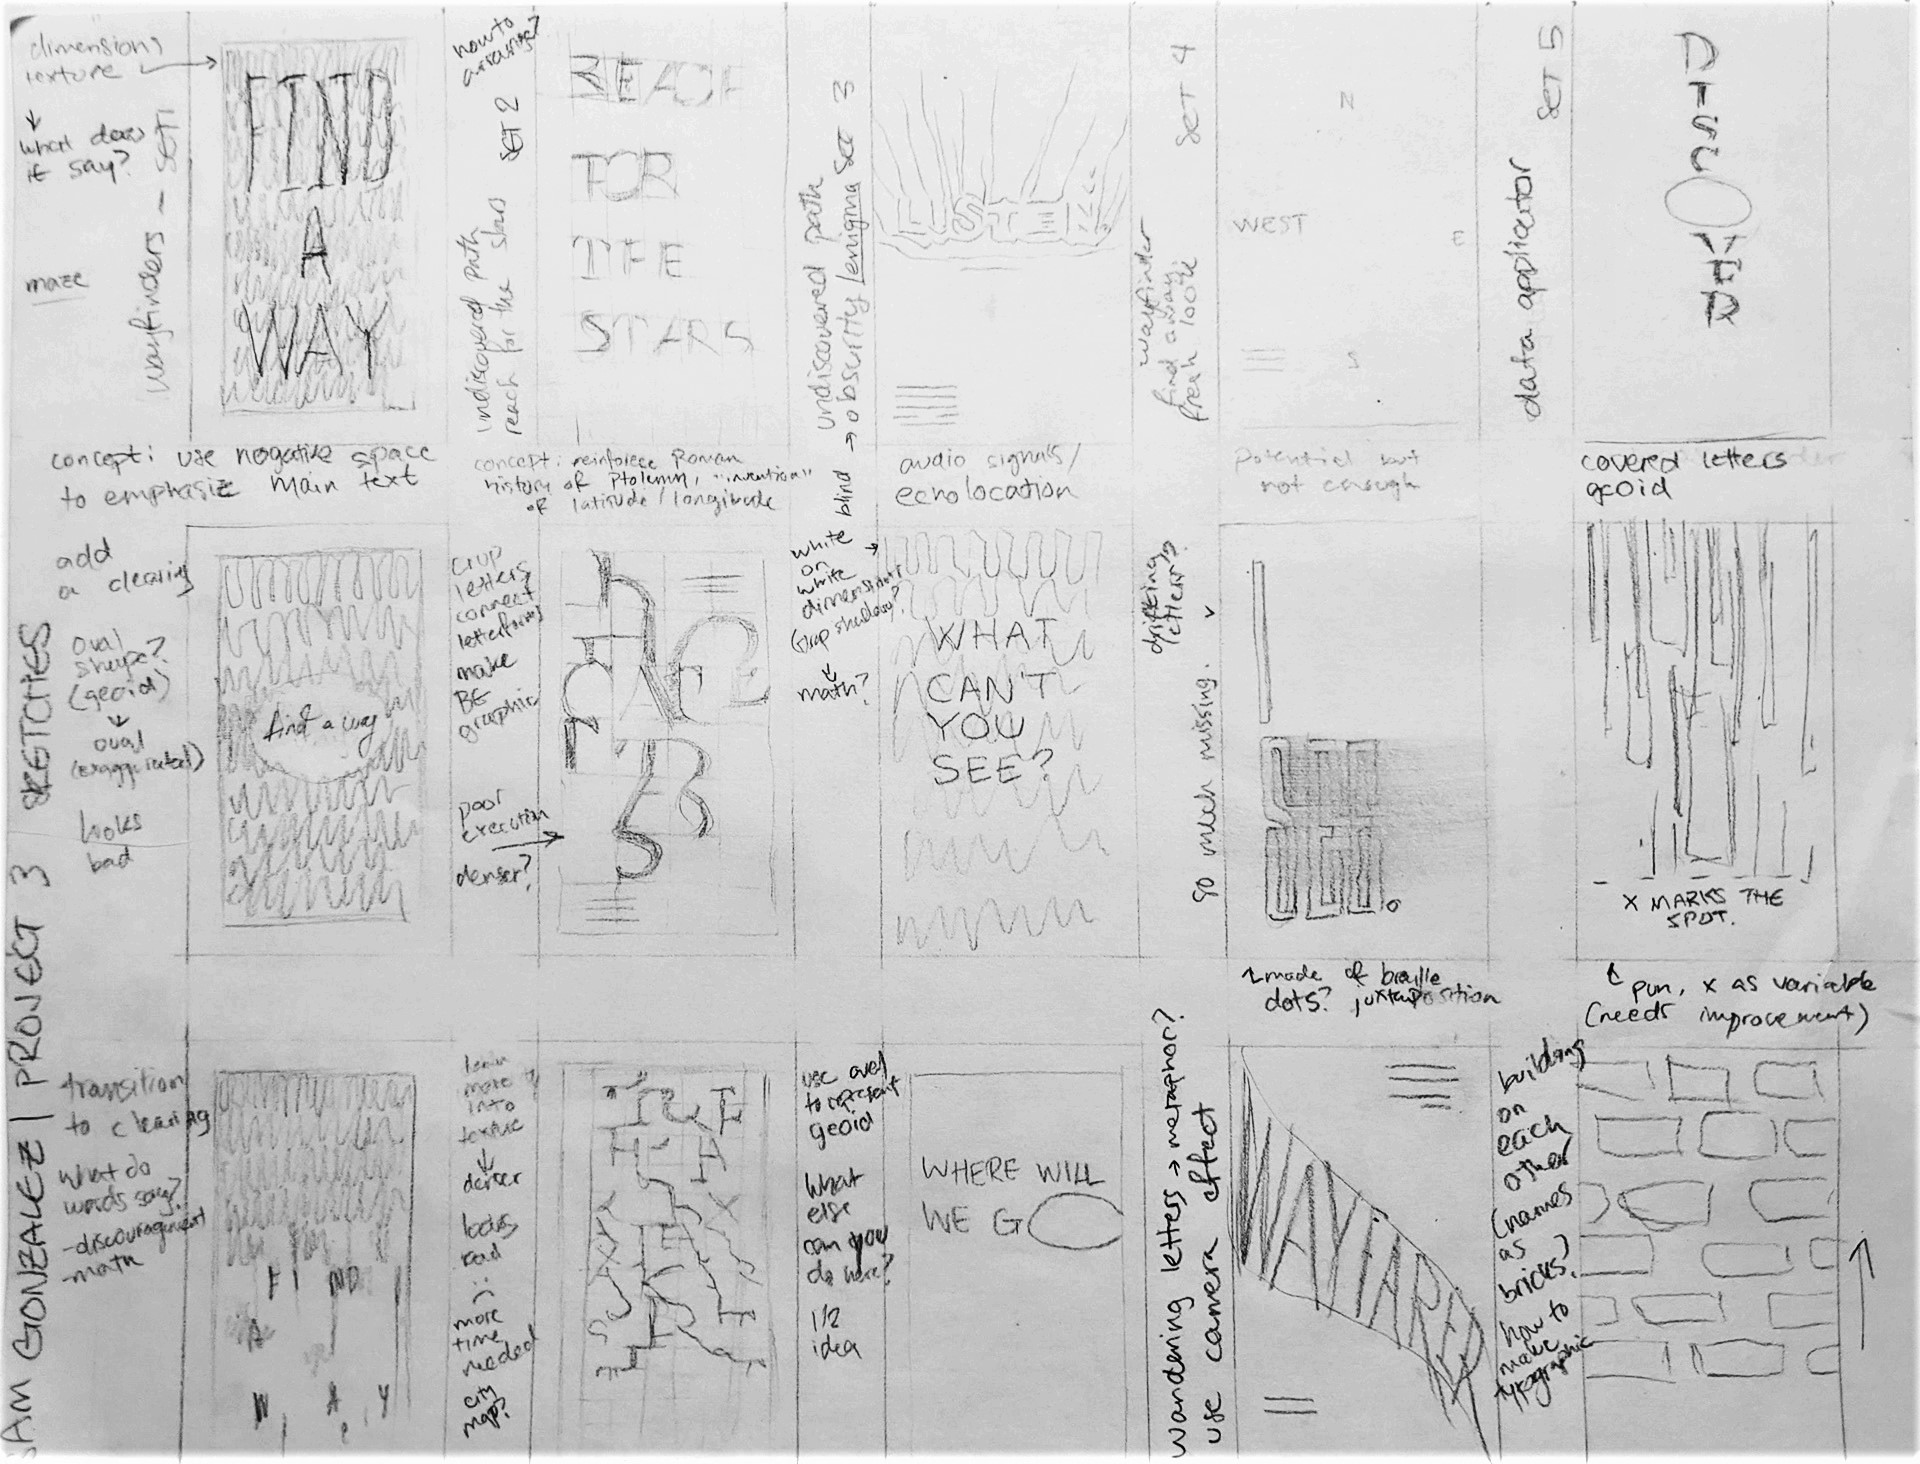 SAM GONZALEZ | PROJECT 3 SKETCHES
dimension,
texture
what does
it say?
maze
wayfinders - SET 1
FIND
A
WAY
concept: use negative space
to emphasize main text
add
a clearing
oval
shape?
(geoid)
oval
(exaggerated)
looks
bad
find a way
transition
to clearing
What do
words say?
-discouragement
-math
FIND
A
WAY
how to
arrange?
SET 2
undiscovered path
reach for the stars
REACH
FOR
THE
STARS
concept: reinforce Roman
history of Ptolemy, "invention"
of latitude/longitude
crop
letters,
connect
letterforms
make
BE
graphic
poor
execution
denser?
lean
more
into
texture
denser
looks
bad
:(
more
time
needed
city
maps?
SET 3
undiscovered path
→ obscurity/enigma
blind
LISTEN.
audio signals/
echolocation
white
on
white
dimension?
(drop shadow)?
math?
WHAT
CAN'T
YOU
SEE?
use oval
to represent
geoid
What
else
can you
do here?
1/2
idea
WHERE WILL
WE GO
SET 4
wayfinder
find a way
fresh look
N
WEST
E
S
potential but
not enough
drifting
letters?
so much missing.
↑ made of braille
dots? juxtaposition
wandering letters → metaphor?
use camera effect
SET 5
data applicator
covered letters
geoid
X MARKS THE
SPOT.
↑ pun, x as variable
(needs improvement)
building
on
each
other
(names
as
bricks?)
how to
make
typographic